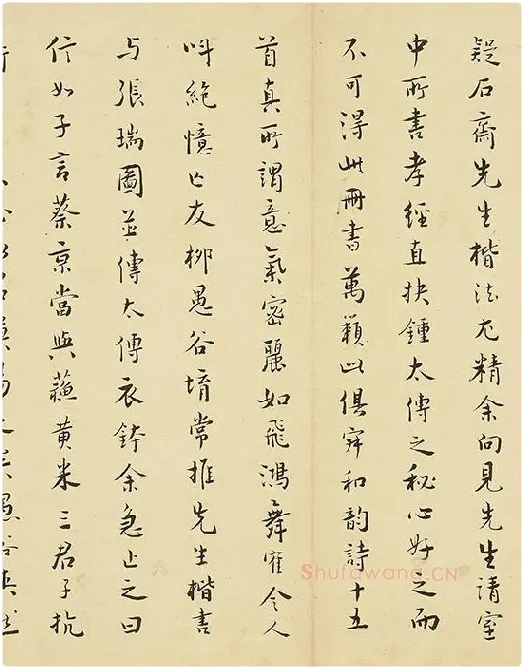 疑石齋先生楷法尤精余向見先生請室
中所書孝經直抉鍾太傅之秘心好之而
不可得此冊書萬籟此俱寂和韵詩十五
首真所謂意氣密麗如飛鴻舞隺令人
叫絕憶亡友柳愚谷堉常推先生楷書
与張瑞圖並傳太傅衣鉢余急止之曰
信如子言蔡京當與蘓黄米三君子抗
行
Shufawang.CN